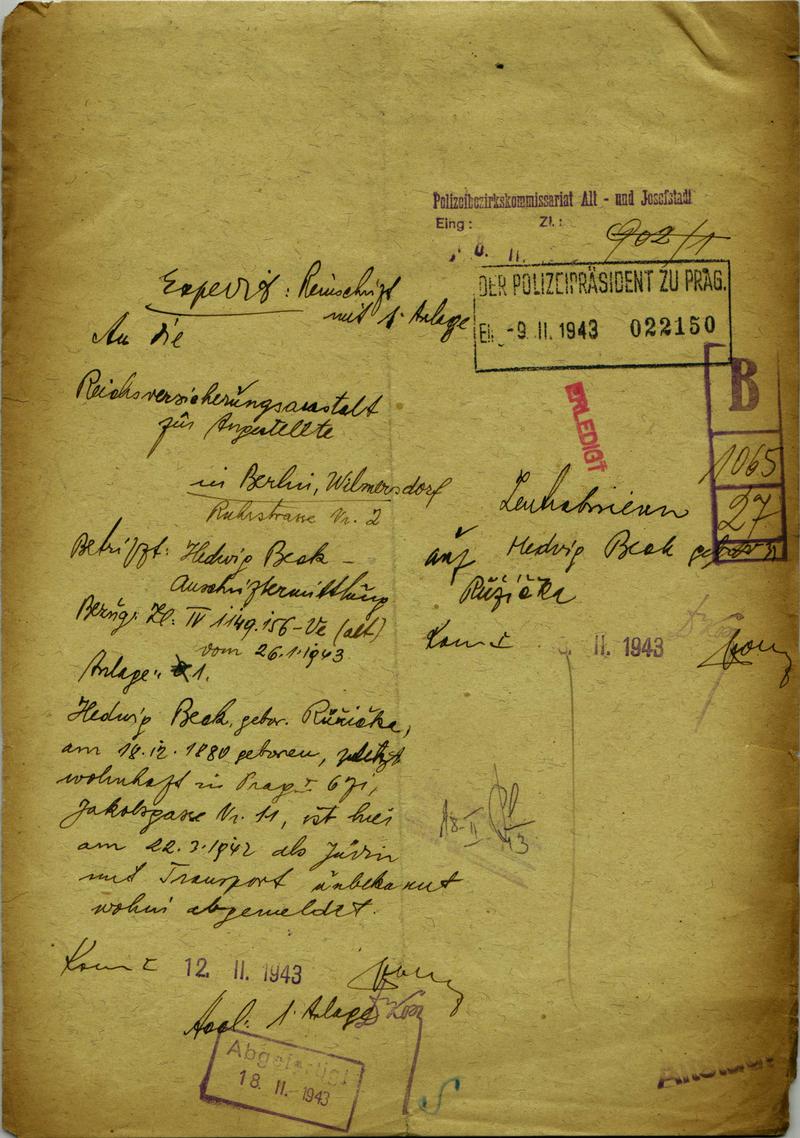 Polizeibezirkskommissariat Alt - und Josefstadt
Eing: Zl.:
902/1
DER POLIZEIPRÄSIDENT ZU PRAG.
-9. II. 1943 022150
B
1065
27
ERLEDIGT
Reinschrift
mit 1 Anlage
An die
Reichsversicherungsanstalt
für Angestellte
in Berlin, Wilmersdorf
Ruhrstrasse Nr. 2
Betrifft: Hedwig Beck -
Anschriftermittlung
Bezug: Zl: IV 1149.156-Ve (alt)
vom 26.1.1943
Anlage: 1.
Hedwig Beck, gebor. Růžička,
am 18.12.1880 geboren, zuletzt
wohnhaft in Prag I 671,
Jakobsgasse Nr. 11, ist hier
am 22.3.1942 als Jüdin
mit Transport unbekannt
wohin abgemeldet.
Kom I 12. II. 1943
1 Anlage
Abgefertigt
18. II. 1943
auf Hedwig Beck
Růžička
Kom I II. 1943
18. II
43
Altstadt